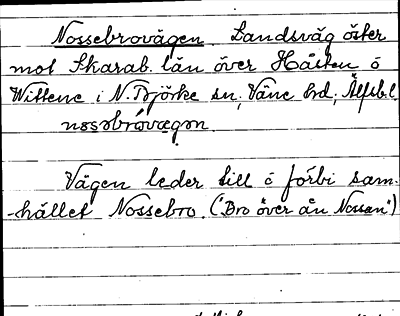 Nossebrovägen. Landsväg öster
mot Skarab. län över Håsten o
Wittene i N. Björke sn, Väne hd, Älfsb.l.
nɷsəbrovægən.
Vägen leder till o förbi sam-
-hället Nossebro. ("Bro över ån Nossan")